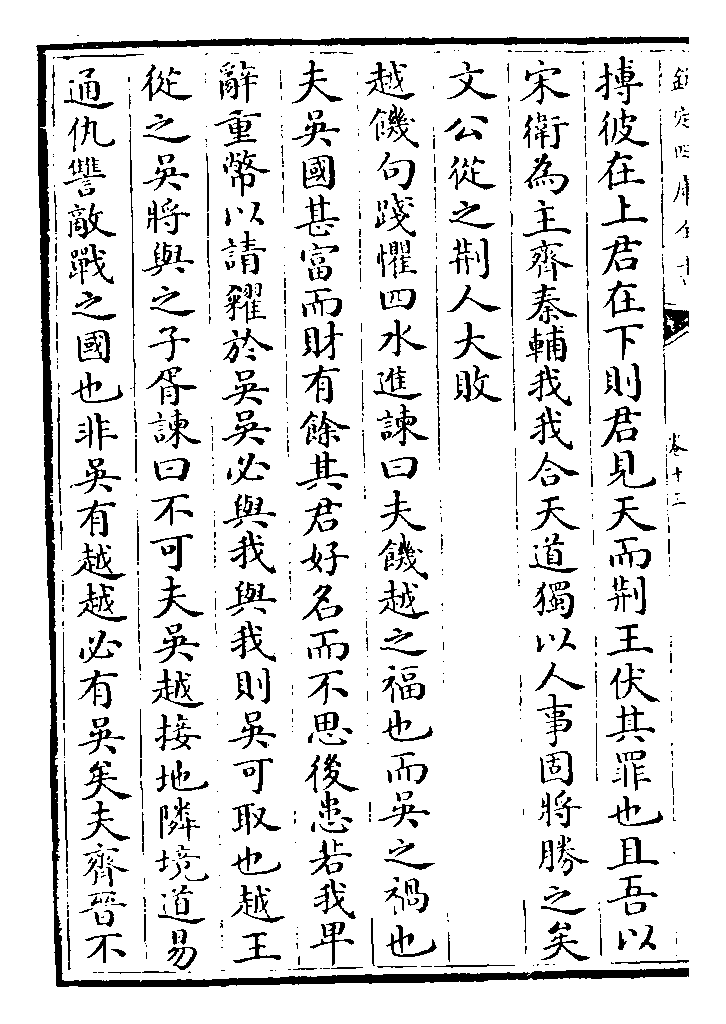 欽定四庫全書
卷十三
搏彼在上君在下則君見天而荆王伏其罪也且吾以
宋衛為主齊秦輔我我合天道獨以人事固將勝之矣
文公從之荆人大敗
越饑句踐懼四水進諫曰夫饑越之福也而吳之禍也
夫吳國甚富而財有餘其君好名而不思後患若我卑
辭重幣以請糴於吳吳必與我與我則吳可取也越王
從之吳將與之子胥諫曰不可夫吳越接地隣境道易
通仇讐敵戰之國也非吳有越越必有吳矣夫齊晉不